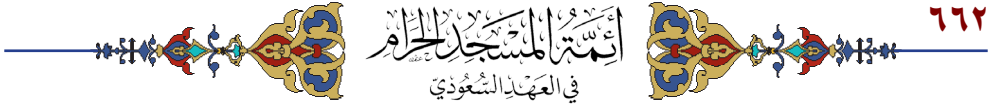 ٦٦٢
أَئِمَّةُ المَسْجِدِ الحَرَامِ
في العَهْدِ السُّعُودِيّ